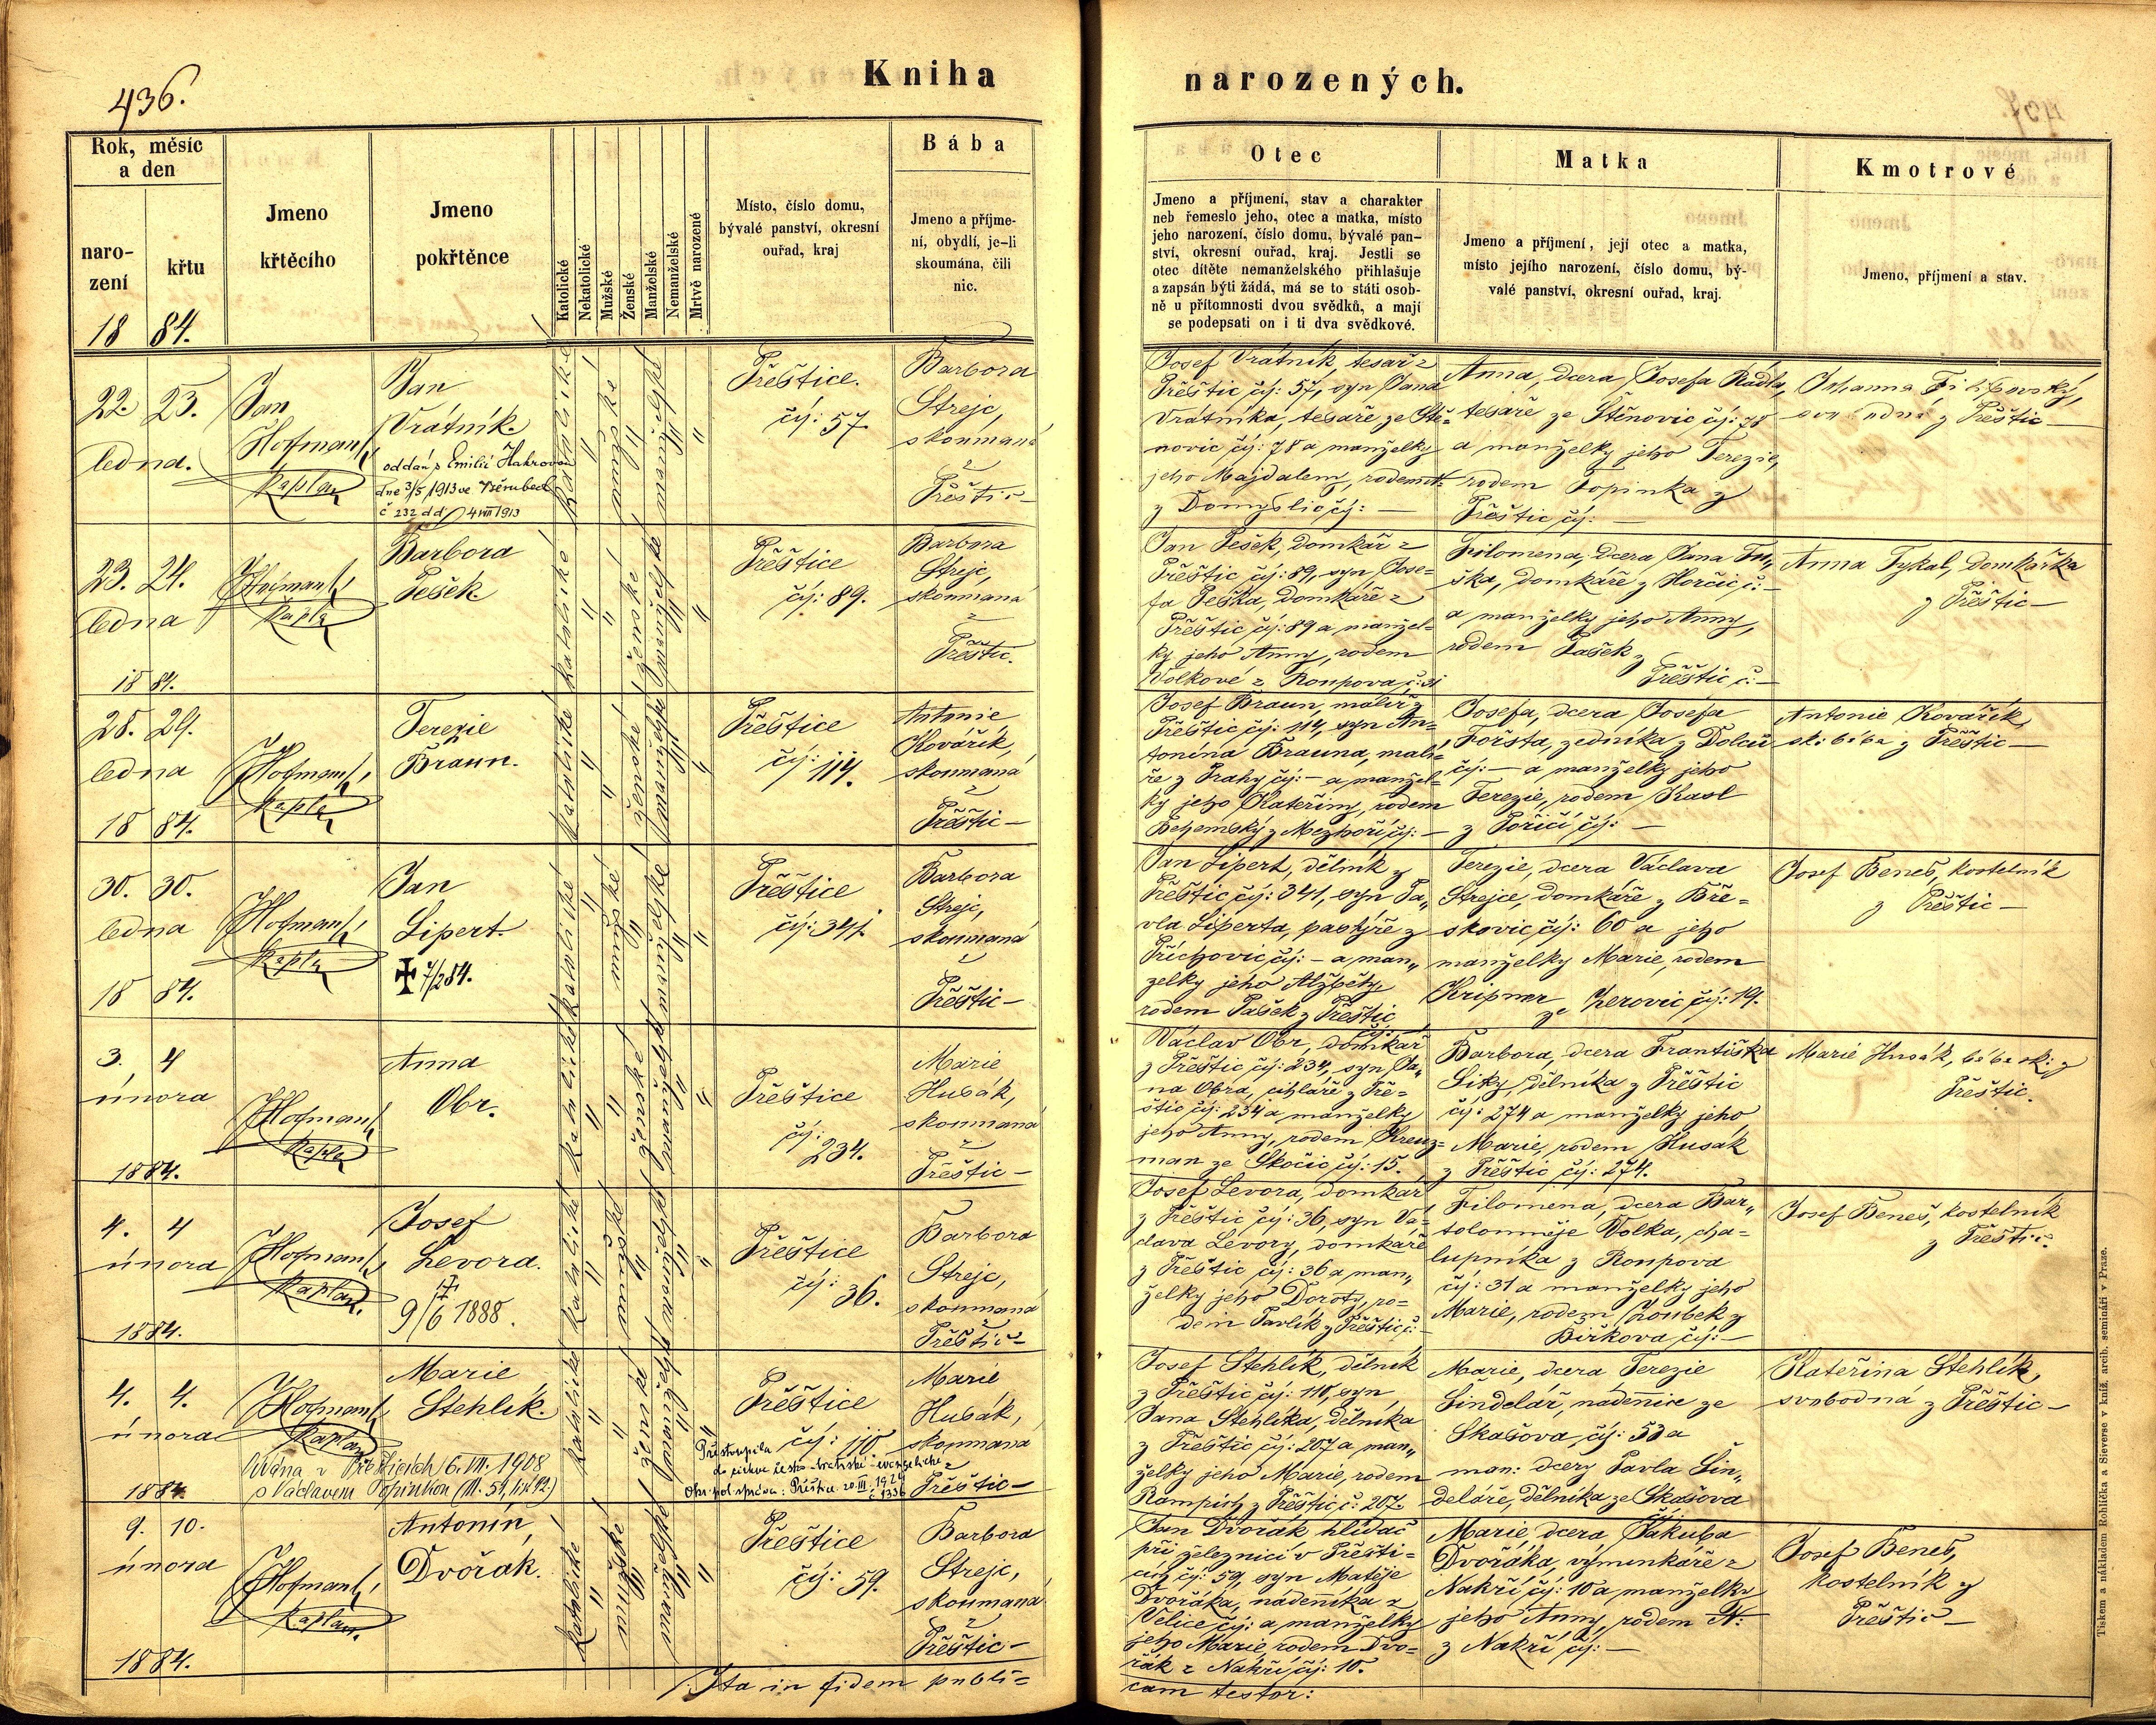 436.
Kniha
narozených.
Rok, měsíc
a den
naro-
zení
křtu
18 84.
Jmeno
křtěcího
Jmeno
pokřtěnce
Katolické
Nekatolické
Mužské
Ženské
Manželské
Nemanželské
Mrtvě narozené
Místo, číslo domu,
bývalé panství, okresní
ouřad, kraj
Bába
Jmeno a příjme-
ní, obydlí, je-li
skoumána, čili
nic.
Otec
Jmeno a příjmení, stav a charakter
neb řemeslo jeho, otec a matka, místo
jeho narození, číslo domu, bývalé pan-
ství, okresní ouřad, kraj. Jestli se
otec dítěte nemanželského přihlašuje
a zapsán býti žádá, má se to státi osob-
ně u přítomnosti dvou svědků, a mají
se podepsati on i ti dva svědkové.
Matka
Jmeno a příjmení, její otec a matka,
místo jejího narození, číslo domu, bý-
valé panství, okresní ouřad, kraj.
Kmotrové
Jmeno, příjmení a stav.
22. 23.
ledna.
Jan
Hofmann,
kaplan
Jan
Vrátník.
oddán s Emilií
dne 3/5 1913 ve
č 232 dd 4 VIII 1913
katolické
mužské
manželské
Přeštice.
čí: 57.
Barbora
Strejc,
skoumaná
z
Přeštic
Josef Vrátník, tesař z
Přeštic čí: 57, syn Jana
Vrátníka, tesaře ze Stě-
novic čí: 78 a manželky
jeho Majdaleny, rodem N.
z Domyslic čí: —
Anna, dcera Josefa Rádla,
tesaře ze Štěnovic čí: 78
a manželky jeho Terezie,
rodem Topinka z
Přeštic čí: —
Johanna
svobodná z Přeštic —
23. 24.
ledna
18 84.
Hofmann,
kaplan
Barbora
Pešek.
katolické
ženské
manželské
Přeštice
čí: 89.
Barbora
Strejc,
skoumaná
z
Přeštic.
Jan Pešek, domkář z
Přeštic čí: 89, syn Jose-
fa Peška, domkáře z
Přeštic čí: 89 a manžel-
ky jeho Anny, rodem
Volkové z Roupova č: 31
Filomena, dcera Jana
domkáře z Horčic č: —
a manželky jeho Anny,
rodem Pašek z
Přeštic č: —
Anna Tykal, domkářka
z Přeštic —
28. 29.
ledna
18 84.
Hofmann,
kaplan
Terezie
Braun.
katolické
ženské
manželské
Přeštice
čí: 114.
Antonie
Kovářík,
skoumaná
z
Přeštic —
Josef Braun, malíř z
Přeštic čí: 114, syn An-
tonína Brauna, malí-
ře z Prahy čí: — a manžel-
ky jeho Kateřiny, rodem
Betjemský z Mezhoří čí: —
Josefa, dcera Josefa
Foršta, zedníka z Dolců
čí: — a manželky jeho
Terezie, rodem Kasl
z Poříčí čí: —
Antonie Kovářík,
sk: bába z Přeštic —
30. 30.
ledna
18 84.
Hofmann,
kaplan
Jan
Lipert.
✠ 4/2 84.
katolické
mužské
manželské
Přeštice
čí: 341.
Barbora
Strejc,
skoumaná
z
Přeštic —
Jan Lipert, dělník z
Přeštic čí: 341, syn Pa-
vla Liperta, pastýře z
Příchovic čí: — a man-
želky jeho Alžběty
rodem Pašek z Přeštic
čí: —
Terezie, dcera Václava
Strejce, domkáře z Bře-
skovic čí: 60 a jeho
manželky Marie, rodem
Kripner ze Zerovic čí: 19.
Josef Beneš, kostelník
z Přeštic —
3. 4
února
1884.
Hofmann,
kaplan
Anna
Obr.
katolické
ženské
manželské
Přeštice
čí: 234.
Marie
Husák,
skoumaná
z
Přeštic —
Václav Obr, domkář
z Přeštic čí: 234, syn Ja-
na Obra, cihláře z Pře-
štic čí: 234 a manželky
jeho Anny, rodem Kreuz-
man ze Skočic čí: 15.
Barbora, dcera Františka
Liky, dělníka z Přeštic
čí: 274 a manželky jeho
Marie, rodem Husák
z Přeštic čí: 274.
Marie Husák, bába sk: z
Přeštic.
4. 4
února
1884.
Hofmann,
kaplan.
Josef
Levora.
†
9/6 1888.
katolické
mužské
manželské
Přeštice
čí: 36.
Barbora
Strejc,
skoumaná
z
Přeštic —
Josef Levora, domkář
z Přeštic čí: 36, syn Vá-
clava Levory, domkáře
z Přeštic čí: 36 a man-
želky jeho Doroty, ro-
dem Pavlík z Přeštic č: —
Filomena, dcera Bar-
toloměje Volka, cha-
lupníka z Roupova
čí: 31 a manželky jeho
Marie, rodem Zoubek z
Biřkova čí: —
Josef Beneš, kostelník
z Přeštic.
4. 4.
února
1884.
Hofmann,
kaplan
Marie
Stehlík.
v Přešticích 6. VII. 1908
s Václavem Topinkou (III. 51, list 92.)
katolické
ženské
manželské
Přeštice
čí: 110
Přestoupila
do církve česko-bratrské evangelické
Okr. pol. správa: Přeštice 20. III. 1924
č 1336
Marie
Husák,
skoumaná
z
Přeštic —
Josef Stehlík, dělník
z Přeštic čí: 110, syn
Jana Stehlíka, dělníka
z Přeštic čí: 207 a man-
želky jeho Marie, rodem
Rampich z Přeštic č: 207.
Marie, dcera Terezie
Šindelář, nádenice ze
Skašova čí: 53 a
man: dcery Pavla Šin-
deláře, dělníka ze Skašova
čí:
Kateřina Stehlík,
svobodná z Přeštic —
9. 10.
února
1884.
Hofmann,
kaplan.
Antonín
Dvořák.
katolické
mužské
manželské
Přeštice
čí: 59.
Barbora
Strejc,
skoumaná
z
Přeštic —
Jan Dvořák hlídač
při železnici v Přešti-
cích čí: 59, syn Matěje
Dvořáka, nádenníka z
Velice čí: a manželky
jeho Marie, rodem Dvo-
řák z Nakří čí: 10.
Marie, dcera Jakuba
Dvořáka, výminkáře z
Nakří čí: 10 a manželky
jeho Anny, rodem N.
z Nakří čí: —
Josef Beneš,
kostelník z
Přeštic —
Ita in fidem publi=
cam testor:
Tiskem a nákladem Rohlíčka a Sieverse v kníž. arcib. semináři v Praze.